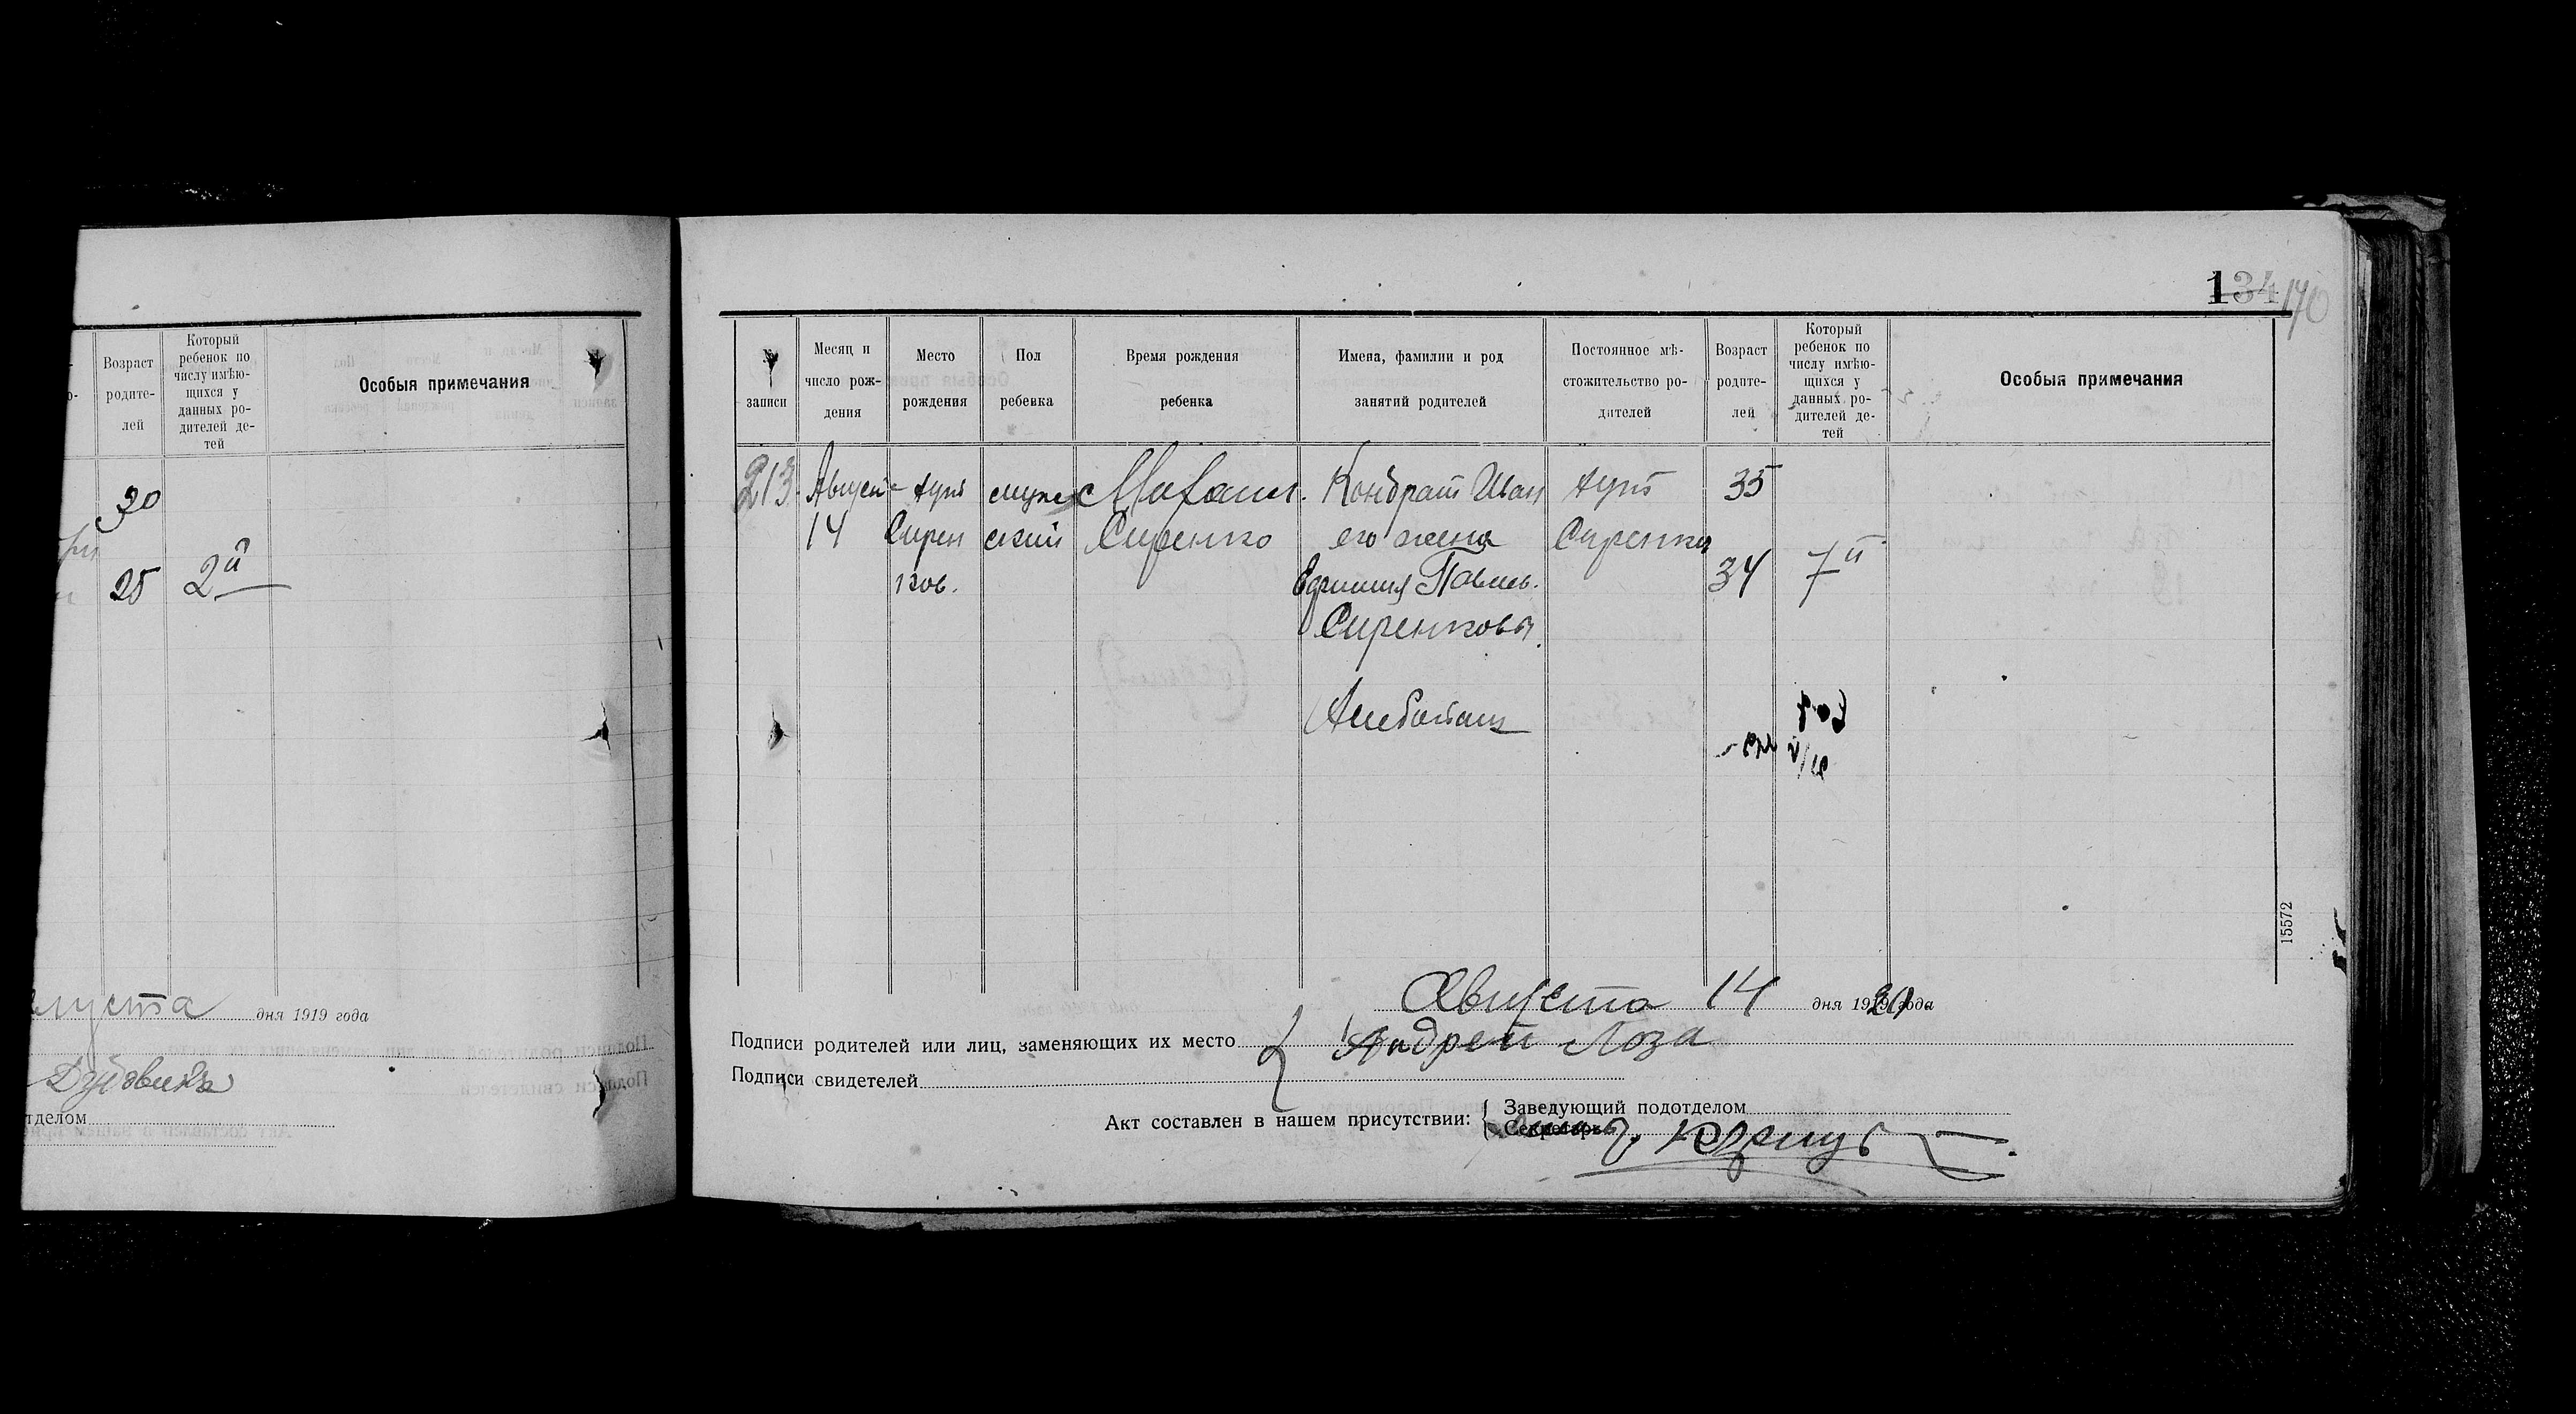 Возраст родите- лей
Который ребенок по числу имѣю- щихся у данных ро- дителей де- тей
Особыя примечания
30
25 2й
августа дня 1919 года
Дубовик
отделом
134 140
№ записи
Месяц и число рож- дения
Место рождения
Пол ребенка
Время рождения ребенка
Имена, фамилии и род занятий родителей
Постоянное мѣ- стожительство ро- дителей
Возраст родите- лей
Который ребенок по числу имѣю- щихся у данных ро- дителей де- тей
Особыя примечания
213 Август 14
Сирен ков.
мужеский
Сиренко
Кондрат Иван
его жена
Сиренковы
Сиренки
35
34 7й
15572
Августа 14 дня 1920 года
Подписи родителей или лиц, заменяющих их место Андрей Лоза
Подписи свидетелей
Акт составлен в нашем присутствии:
Заведующий подотделом
Секретарь